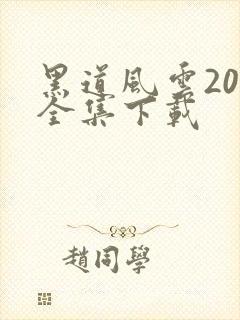 黑道風雲20
全集下載
趙同學